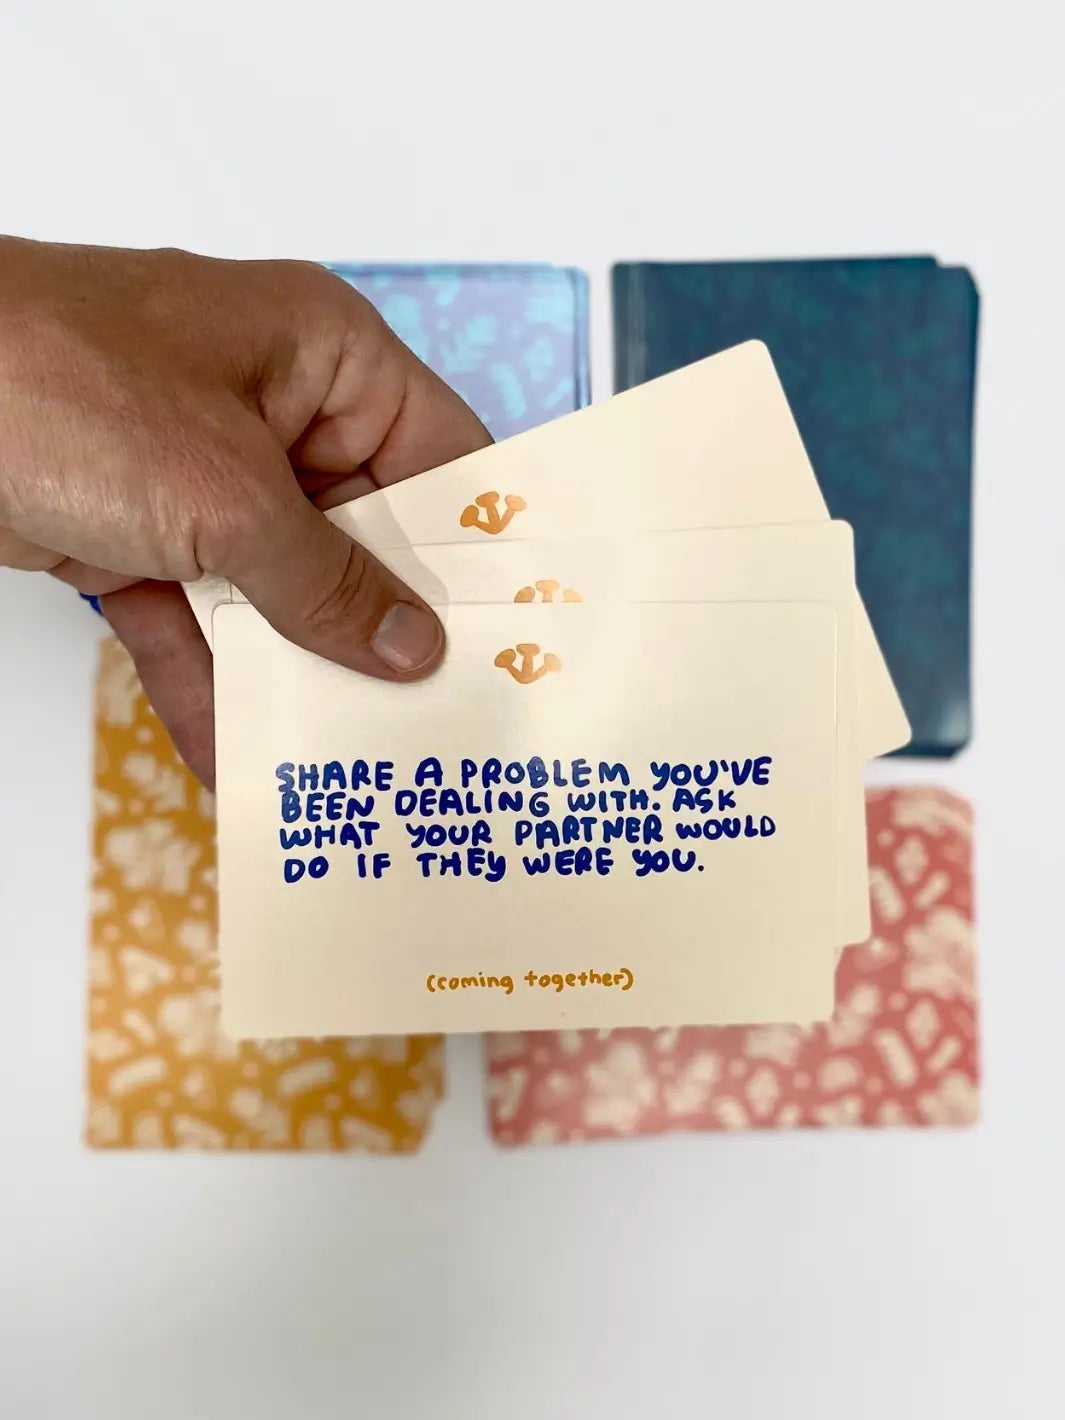 SHARE A PROBLEM YOU'VE
BEEN DEALING WITH. ASK
WHAT YOUR PARTNER WOULD
DO IF THEY WERE YOU.
(coming together)